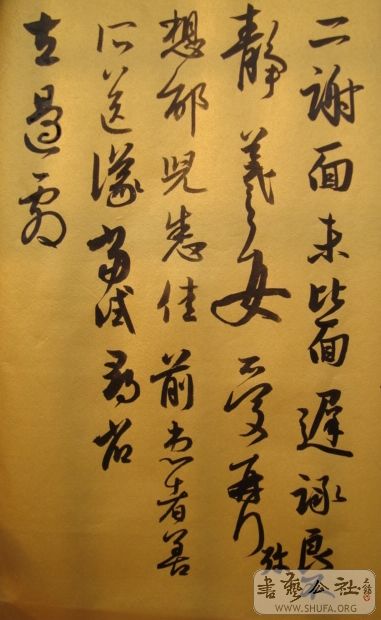 二謝面未比面遲詠良不
靜羲之女愛再拜
想邰兒悉佳前患者善
所送議當試尋省
左邊劇
書藝公社
WWW.SHUFA.ORG